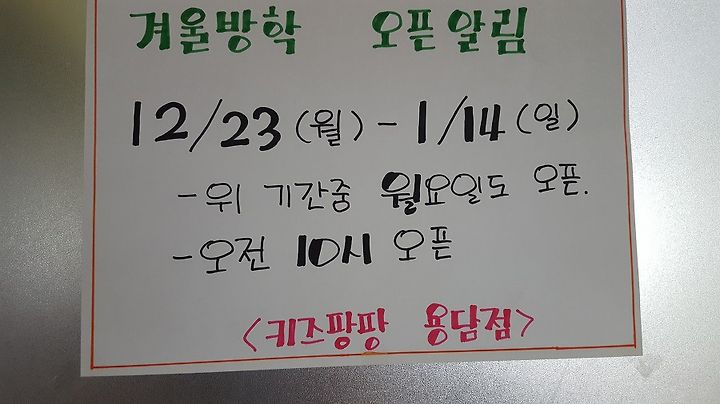 겨울방학 오픈알림
12/23(월) - 1/14(일)
- 위 기간중 월요일도 오픈.
- 오전 10시 오픈
<키즈팡팡 용담점>